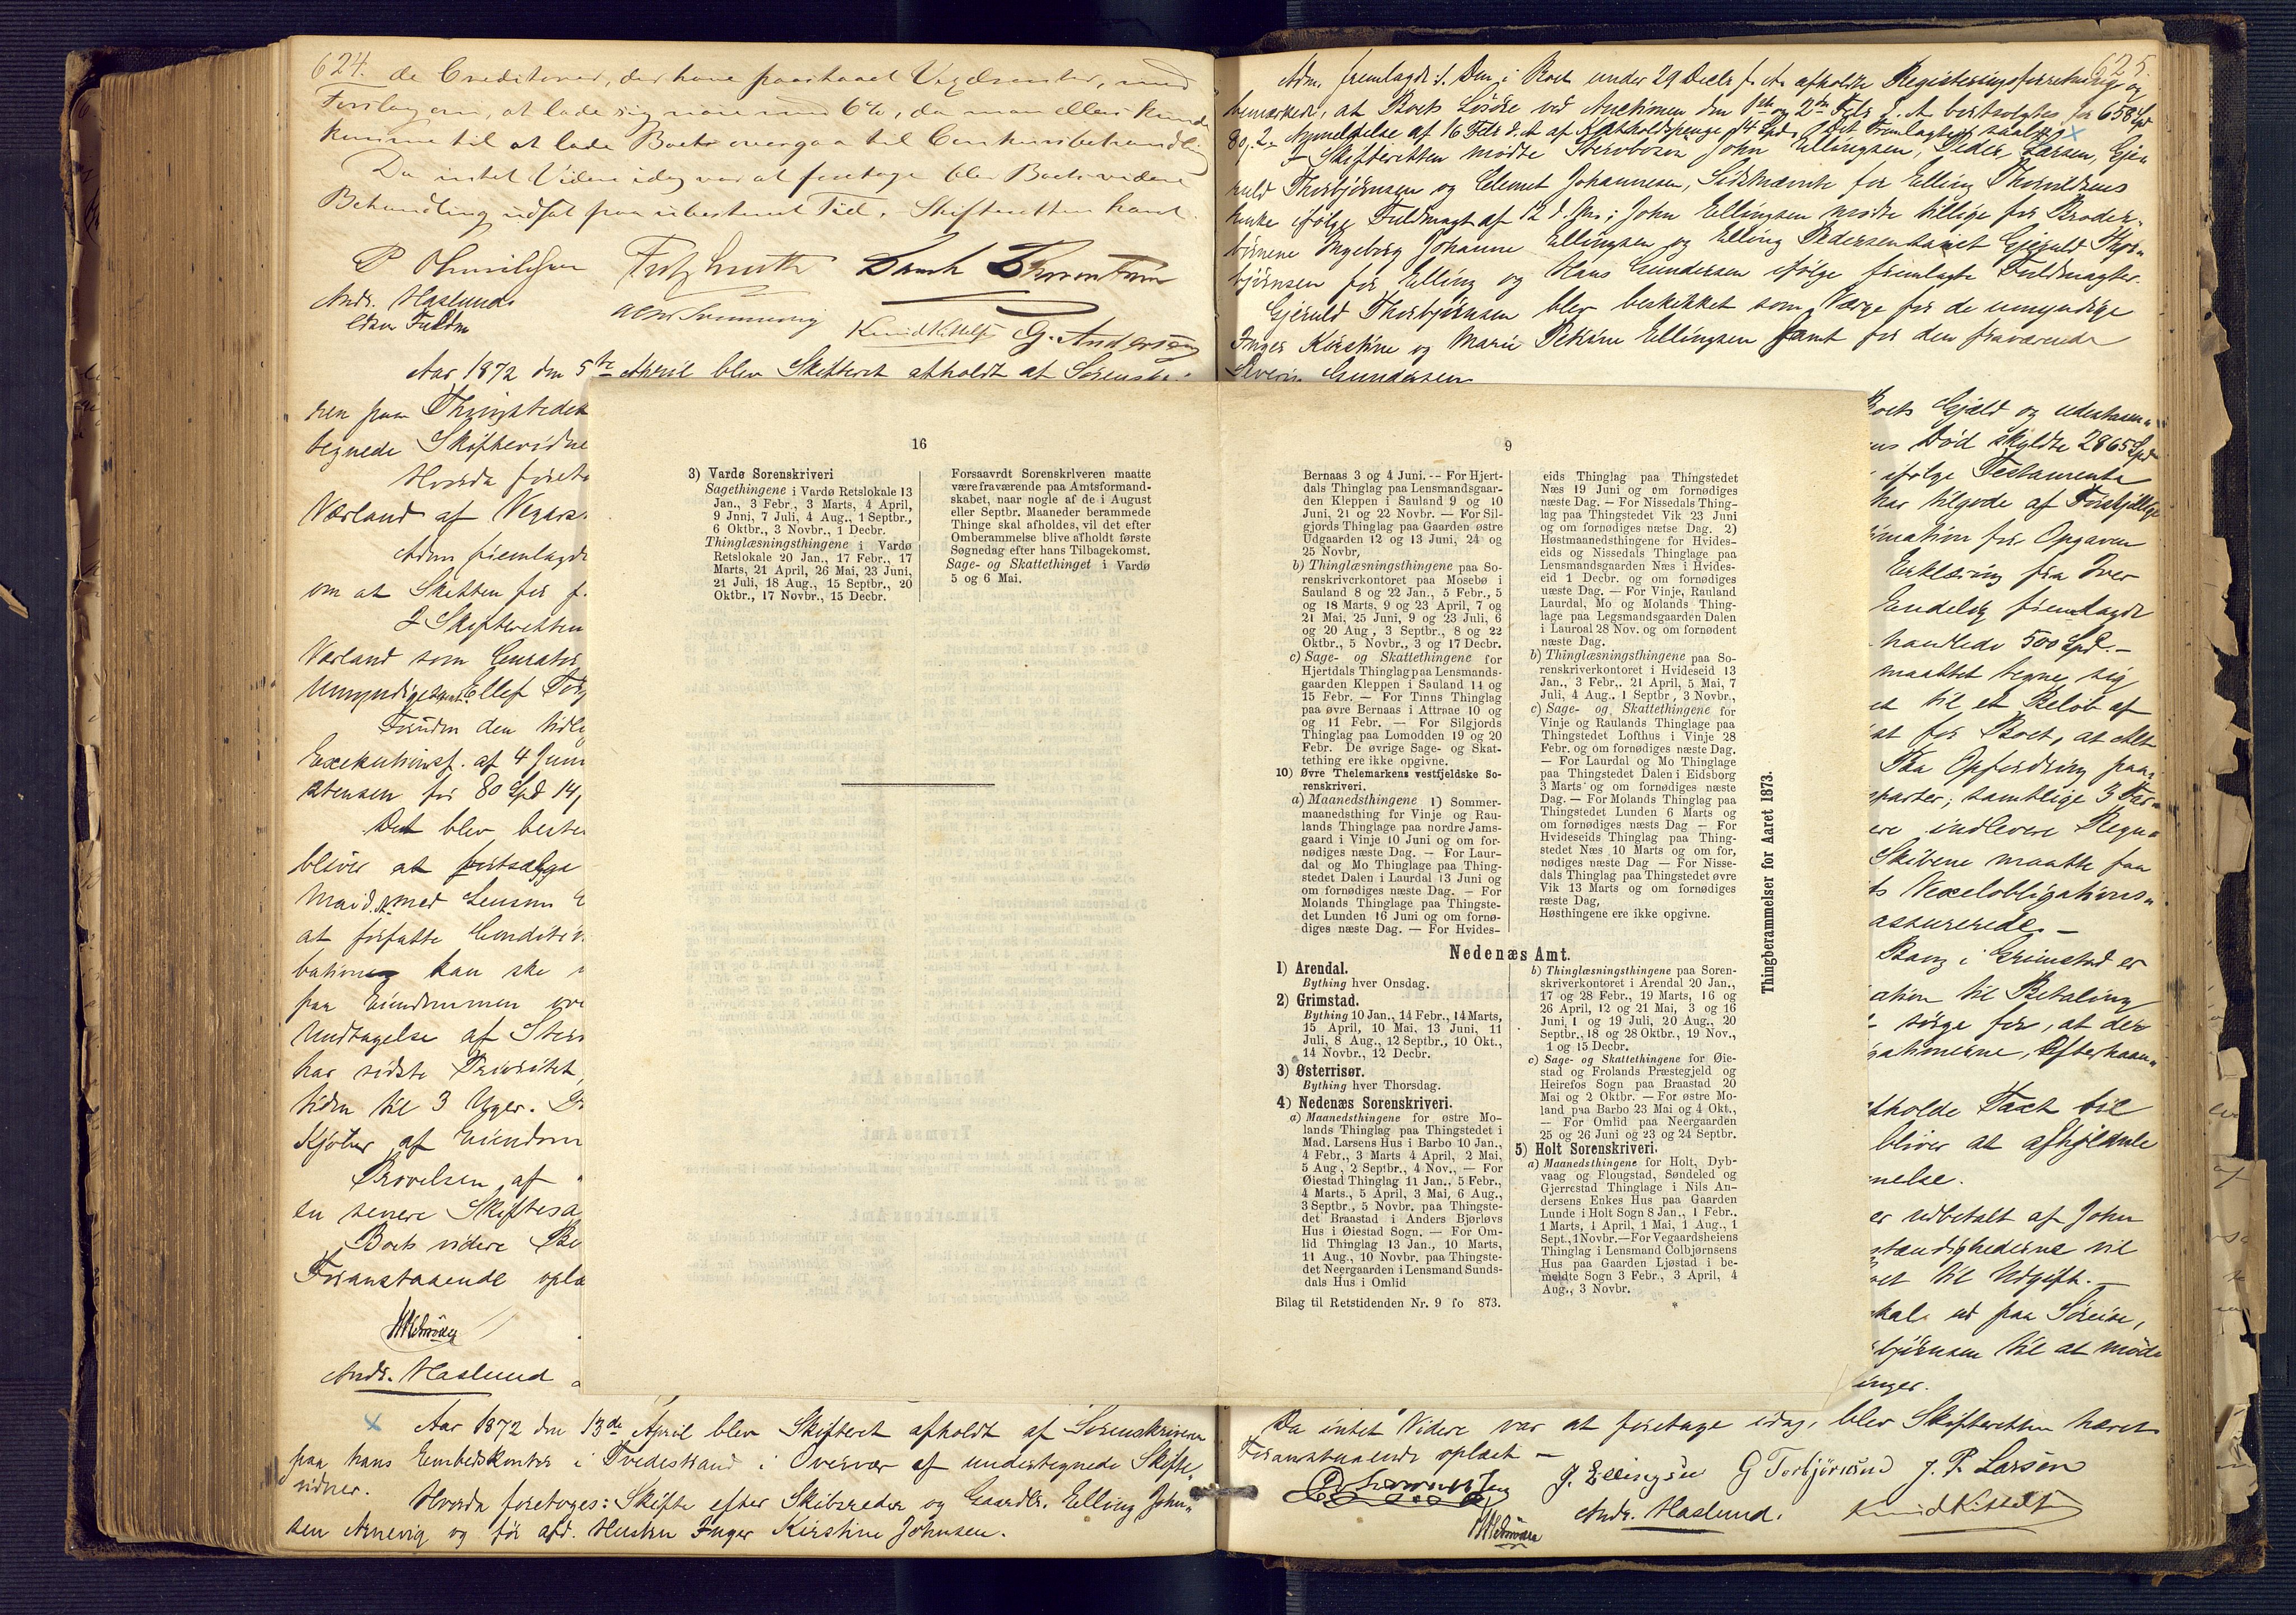 624.
de Creditorer, der have paastaaet Vexelrenter, med
Forslag om, at lade sig nøie med 6%, da man ellers kunde
komme til at lade Boets overgaa til Concursbehandling
Da intet Videre idag var at foretage blev Boets videre
Behandling udsat paa ubestemt Tid. Skifteretten hævet.
Andr. Haslund
Knud Kittelsen G. Andersen
Aar 1872 den 5te April blev Skifteret afholdt af Sorenskri-
ren paa Thingstedet
tegnede Skiftevidne
Hvorda foreto
Værland af Vegars
Adm fremlagde
om at Skiftten for f.
I Skifteretten
Værland som Curator
Umyndige samt Ellef Torg
Foruden den tidli
Executionsf. af 4 Juni
stensen for 80 Spd 14
Det blev beste
bliver at fortsælge
Maid. med Lensm
at forfatte Condition
paa Eiendommen ove
Undtagelse af Ster
har sidste Prioritet
tiden til 3 Uger. D
Kjøber af Eiendom
Prøvelsen af
en senere Skiftesa
Boets videre Be
Foranstaaende oplæ
Andr. Haslund
x Aar 1872 den 13de April blev Skifteret afholdt af Sorenskriveren
paa hans Embedskontor i Tvedestrand i Overvær af undertegnede Skifte-
vidner.
Hvorda foretoges: Skifte efter Skibsreder og Gaardbr. Elling John-
sen Arnevig og før afd. Hustru Inger Kirstine Johnsen.
16
3) Vardø Sorenskriveri
Sagethingene i Vardø Retslokale 13
Jan., 3 Febr., 3 Marts, 4 April,
9 Jnni, 7 Juli, 4 Aug., 1 Septbr.,
6 Oktbr., 3 Novbr., 1 Decbr.
Thinglæsningsthingene i Vardø
Retslokale 20 Jan., 17 Febr., 17
Marts, 21 April, 26 Mai, 23 Juni,
21 Juli, 18 Aug., 15 Septbr., 20
Oktbr., 17 Novbr., 15 Decbr.
Forsaavrdt Sorenskrlveren maatte
være fraværende paa Amtsformand-
skabet, naar nogle af de i August
eller Septbr. Maaneder berammede
Thinge skal afholdes, vil det efter
Omberammelse blive afholdt første
Søgnedag efter hans Tilbagekomst.
Sage- og Skattethinget i Vardø
5 og 6 Mai.
625.
Adm. fremlagde: 1. Den i Boet under 29 Decbr f. A. afholdte Registreringsforretning og
bemærkede, at Boets Løsøre ved Auctionen den 1ste og 2den Febr d. A. bortsolgtes for 658 Spd
80. 2. Anmeldelse af 16 Febr d. A. af Afholdspenge 14 Spd. Det Fremlagte saalyd. x
I Skifteretten mødte Sterboson John Ellingsen, Peder Larsen, Gje-
ruld Thorbjørnsen og Clemet Johannesen, Sidstnævnte for Elling Thorvildsens
Enke ifølge Fuldmagt af 12 d. Ms; John Ellingsen mødte tillige for Broder-
børnene Ingeborg Johanne Ellingsen og Elling Pedersen samt Gjeruld Thor-
bjørnsen for Elling og Hans Gundersen ifølge fremlagte Fuldmagter.
Gjeruld Thorbjørnsen blev beskikket som Værge for de umyndige
Inger Kirstine og Marie Petrine Ellingsen samt for den fraværende
Severin Gundersen
9
Bernaas 3 og 4 Juni. -- For Hjert-
dals Thinglag paa Lensmandsgaar-
den Kleppen i Sauland 9 og 10
Juni, 21 og 22 Novbr. — For Sil-
gjords Thinglag paa Gaarden østre
Udgaarden 12 og 13 Juni, 24 og
25 Novbr,
b) Thinglæsningsthingene paa So-
renskriverkontoret paa Mosebø i
Sauland 8 og 22 Jan., 5 Febr., 5
og 18 Marts, 9 og 23 April, 7 og
21 Mai, 25 Juni, 9 og 23 Juli, 6
og 20 Aug, 3 Septbr., 8 og 22
Oktbr., 5 Novbr., 3 og 17 Decbr.
c) Sage- og Skattethingene for
Hjertdals Thinglag paa Lensmands-
gaarden Kleppen i Sauland 14 og
15 Febr. — For Tinns Thinglag
paa øvre Bernaas i Attraae 10 og
og 11 Febr. — For Silgjords
Thinglag paa Lomodden 19 og 20
Febr. De øvrige Sage- og Skat-
tething ere ikke opgivne.
10) Øvre Thelemarkens vestfjeldske So-
renskriveri.
a) Maanedsthingene 1) Sommer-
maanedsthing for Vinje og Rau-
lands Thinglage paa nordre Jams-
gaard i Vinje 10 Juni og om for-
nødiges næste Dag. — For Laur-
dal og Mo Thinglage paa Thing-
stedet Dalen i Laurdal 13 Juni og
om fornødiges næste Dag. — For
Molands Thinglage paa Thingste-
det Lunden 16 Juni og om fornø-
diges næste Dag. — For Hvides-
eids Thinglag paa Thingstedet
Næs 19 Juni og om fornødiges
næste Dag. — For Nissedals Thing-
lag paa Thingstedet Vik 23 Juni
og om fornødiges nætse Dag. 2)
Høstmaanedsthingene for Hvides-
eids og Nissedals Thinglage paa
Lensmandsgaarden Næs i Hvides-
eid 1 Decbr. og om fornødiges
næste Dag. — For Vinje, Rauland
Laurdal, Mo og Molands Thing-
lage paa Legsmandsgaarden Dalen
i Lauroal 28 Nov. og om fornødent
næste Dag.
b) Thinglæsningsthingene paa So-
renskriverkontoret i Hvideseid 13
Jan., 3 Febr,. 21 April, 5 Mai, 7
Juli, 4 Aug.. 1 Septbr, 3 Novbr.,
c) Sage- og Skattethingene for
Vinje og Raulands Thinglage paa
Thingstedet Lofthus i Vinje 28
Febr. og om fornødiges næste Dag.
— For Laurdal og Mo Thinglage
paa Thingstedet Dalen i Eidsborg
3 Marts og om fornødiges næste
Dag. — For Molands Thinglag paa
Thingstedet Lunden 6 Marts og
om fornødiges næsts Dag — For
Hvideseids Thinglag paa Thing-
stedet Næs 10 Marts og om for,
nødiges næste Dag — For Nisse-
dals Thinglag paa Thingstedet øvre
Vik 13 Marts og om fornødiges
ræste Dag,
Høsthingene ere ikke opgivne.
Nedenæs Amt.
1) Arendal.
Bything hver Onsdag.
2) Grimstad.
Bything 10 Jan., 14 Febr., 14 Marts,
15 April, 10 Mai, 13 Juni, 11
Juli, 8 Aug., 12 Septbr., 10 Okt.,
14 Novbr., 12 Decbr.
3) Østerrisør.
Bything hver Thorsdag.
4) Nedenæs Sorenskriveri.
a) Maanedsthingene for østre Mo-
lands Thinglag paa Thingstedet i
Mad. Larsens Hus i Barbo 10 Jan.,
4 Febr., 3 Marts 4 April, 2 Mai,
5 Aug, 2 Septbr., 4 Nov., — For
Øiestad Thinglag 11 Jan., 5 Febr.,
4 Marts., 5 April, 3 Mai, 6 Aug.,
3 Septbr., 5 Novbr. paa Thingste-
det Braastad i Anders Bjørløvs
Hus i Øiestad Sogn. — For Om-
lid Thinglag 13 Jan., 10 Marts,
11 Aug., 10 Novbr. paa Thingste-
det Neergaarden i Lensmand Sunds-
dals Hus i Omlid
b) Thinglæsningsthingene paa Soren-
skriverkontoret i Arendal 20 Jan.,
17 og 28 Febr., 19 Marts, 16 og
26 April, 12 og 21 Mai, 3 og 16
Juni, 1 og 19 Juli, 20 Aug., 20
Septbr., 18 og 28 Oktbr., 19 Nov.,
1 og 15 Decbr.
c) Sage- og Skattethingene for Øie-
stad og Frolands Præstegjeld og
Heirefos Sogn paa Braastad 20
Mai og 2 Oktbr. — For østre Mo-
land paa Barbo 23 Mai og 4 Okt.,
— For Omlid paa Neergaarden
25 og 26 Juni og 23 og 24 Septbr.
5) Holt Sorenskriveri.
a) Maanedsthingene for Holt, Dyb-
vaag og Flougstad, Søndeled og
Gjerrestad Thinglage i Nils An-
dersens Enkes Hus paa Gaarden
Lunde i Holt Sogn 8 Jan., 1 Febr..
1 Marts, 1 April, 1 Mai, 1 Aug., 1
Sept., 1 Novbr.—For Vegaardsheiens
Thinglag i Lensmand Colbjørnsens
Hus paa Gaarden Ljøstad i be-
meldte Sogn 3 Febr., 3 April, 4
Aug., 3 Novbr.
Bilag til Retstidenden Nr. 9 fo 873.
Thingberammelser for Aaret 1873.
Boets Gjæld og udestaaen-
ns Død skyldte 2865 Spd
ifølge Testamente
har tilgode af Forskjellige
mation for Opgaven
Erklæring fra Iver
Endelig fremlagde
handlede 500 Spd. —
maattet tegne sig
et til et Beløb af
at for Boet, at Alt
Paa Opfordring paa-
sparter; samtlige 3 Par-
ere indlevere Regn-
Skibene maatte faa
ts Vexelobligations-
assurerede. —
Bang i Grimstad er
ation til Betaling
sørge for, at der
gationerne, Efterhaan-
afholde Taxt til
bliver at afhjemle
melse.
er udbetalt af John
stændighederne vil
oet til Udgift. —
skal ud paa Søreise,
bjørnsen til at møde
inger.
Da intet Videre var at foretage idag, blev Skifteretten hævet.
Foranstaaende oplæst —
J. Ellingsen G Torbjørnsen J. P. Larsen
Andr. Haslund. Knud Kittelsen